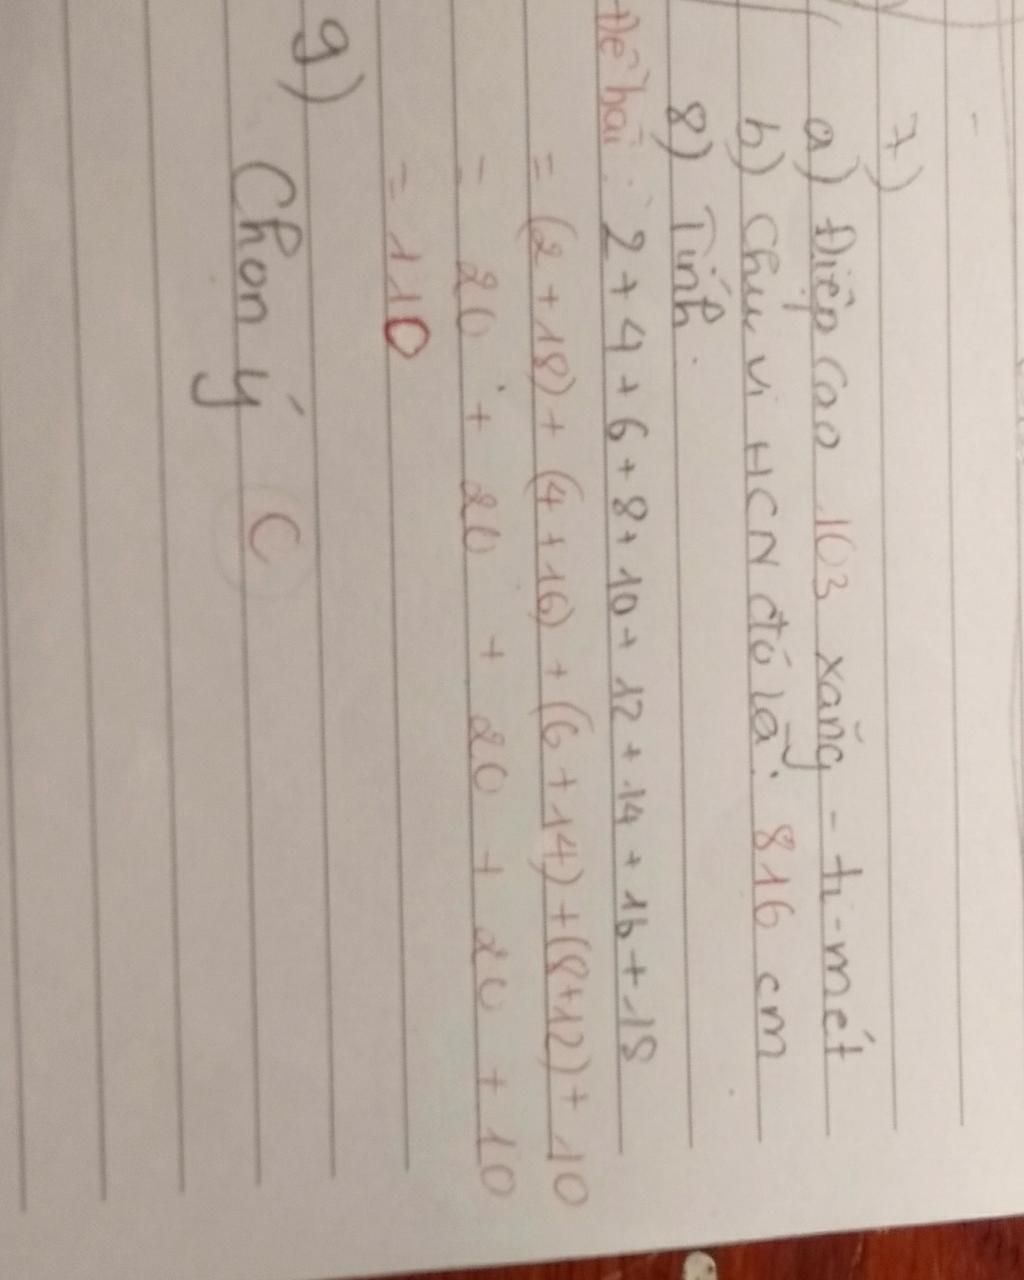 7)
a) Điệp cao 103 xăng-ti-mét
b) Chu vi HCN đó là: 816 cm
8) Tính.
Đề bài: 2 + 4 + 6 + 8 + 10 + 12 + 14 + 16 + 18
= (2 + 18) + (4 + 16) + (6 + 14) + (8 + 12) + 10
= 20 + 20 + 20 + 20 + 10
= 110
9) Chọn ý C